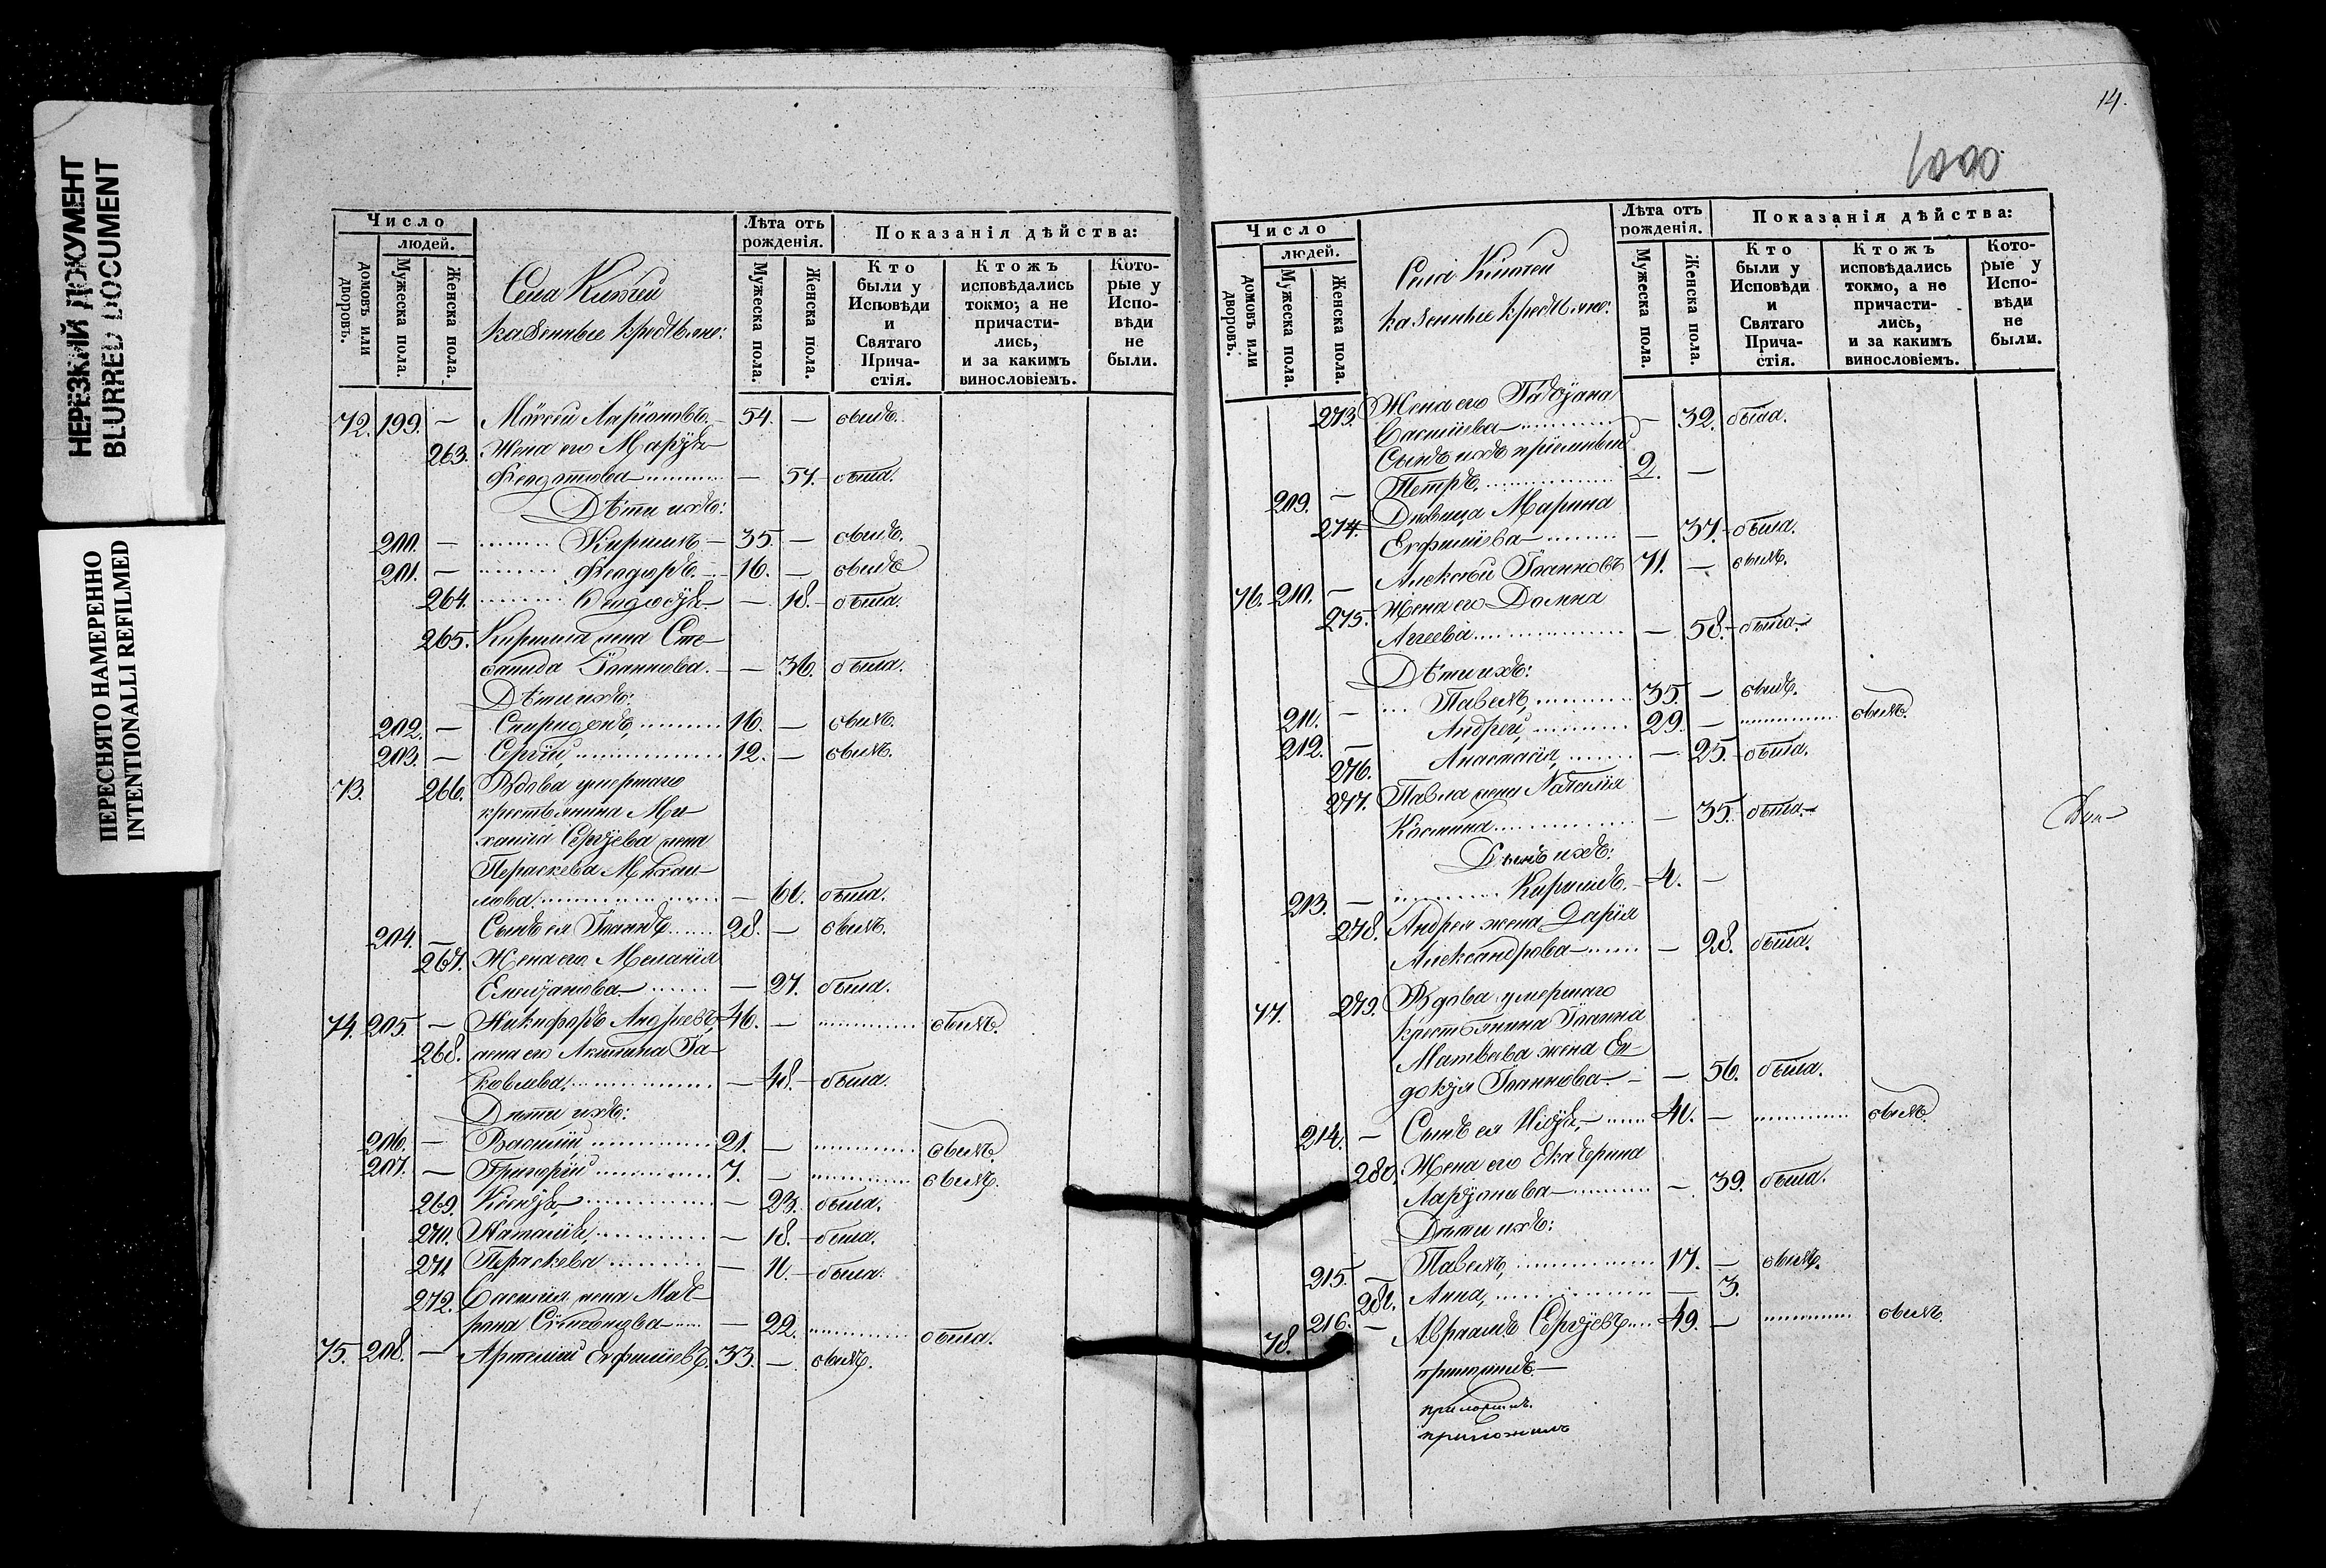 НЕРЕЗКИЙ ДОКУМЕНТ
BLURRED DOCUMENT
ПЕРЕСНЯТО НАМЕРЕННО
INTENTIONALLI REFILMED
Число
людей.
домовъ или дворовъ.
Мужеска пола.
Женска пола.
Села
казенные крестьяне:
Лѣта отъ рожденія.
Мужеска пола.
Женска пола.
Показанія дѣйства:
Кто были у Исповѣди и Святаго Прича-стія.
Ктожъ исповѣдались токмо, а не причасти-лись, и за какимъ винословіемъ.
Кото-рые у Испо-вѣди не были.
72. 199. — Ларіоновъ. 54. — былъ.
263. Жена его Марѳа
Ѳеодотова — 57. была.
Дѣти ихъ:
200. — Кириллъ — 35. — былъ.
201. — Ѳеодоръ. 16. — былъ
264. Ѳеодосія — 18. была.
265. Кирилла жена Сте-
Іоаннова. — 36. была.
Дѣти ихъ:
202. — Спиридонъ, 16. — былъ.
203. — Сергій, 12. — былъ.
73. 266. Вдова умершаго
крестьянина Ми-
хаила Сергіева жена
Параскева Михаи-
лова. — 61. была.
204. — Сынъ ея Іоаннъ 28. — былъ.
267. Жена его Меланія
Емеліянова — 27. была.
74. 205. — Никифоръ Андреевъ, 46. — былъ.
268. жена его Акилина Іа-
ковлева. — 48. была.
Дѣти ихъ:
206. — Василій 21. — былъ.
207. — Григорій 7. — былъ.
269. — 23. была.
270. Наталія, — 18. была.
271. Параскева — 11. была.
272. Василія жена Мат-
рона — 22. была.
75. 208. — Артемій Евфиміевъ. 33. — былъ.
14.
1000
Число
людей.
домовъ или дворовъ.
Мужеска пола.
Женска пола.
Села
казенные крестьяне:
Лѣта отъ рожденія.
Мужеска пола.
Женска пола.
Показанія дѣйства:
Кто были у Исповѣди и Святаго Прича-стія.
Ктожъ исповѣдались токмо, а не причасти-лись, и за какимъ винословіемъ.
Кото-рые у Испо-вѣди не были.
273. Жена его Татіана
— 32. была.
Сынъ ихъ пріемный
209. — Петръ. 2. —
274. Дѣвица Марина
Евфиміева — 37. была.
76. 210. — Алексѣй Іоанновъ 71. — былъ.
275. Жена его Домна
Аггеева — 58. была.
Дѣти ихъ:
211. — Павелъ, 35. — былъ.
212. — Андрей, 29. — былъ.
276. Анастасія, — 25. была.
277. Павла жена Наталія
Космина — 35. была.
Сынъ ихъ:
213. — Кириллъ. 4. —
278. Андрея жена Дарія
Александрова — 28. была.
77. 279. Вдова умершаго
крестьянина Іоанна
Матвѣева жена Ев-
докія Іоаннова — 56. была.
214. — Сынъ ея Илія, 41. — былъ.
280. Жена его Екатерина
Ларіонова — 39. была.
Дѣти ихъ:
215. — Павелъ, 17. — былъ.
281. Анна, — 3.
78. 216. — Авраамъ Сергіевъ 49. — былъ.
приложилъ